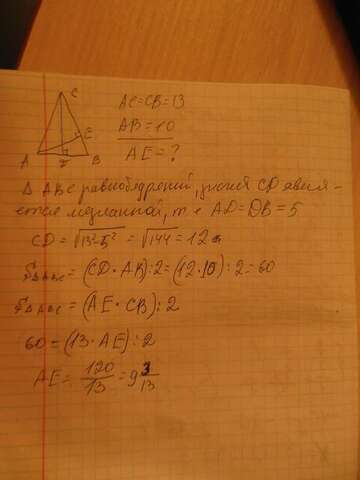 C
E
A
D
B
AC=CB=13
AB=10
AE=?
Δ ABC равнобедрений, значит CD явля-
ется медианной, т е AD=DB=5
CD = √13²-5² = √144 = 12
S ΔABC = (CD · AB):2 = (12·10):2=60
S ΔABC = (AE · CB):2
60 = (13 · AE):2
AE = 120/13 = 9 3/13